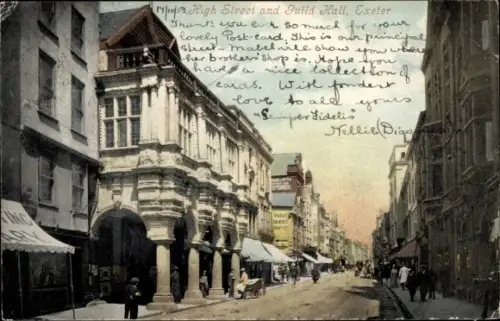 High Street and Guild Hall, Exeter
17/1/05
Thank you ever so much for your
lovely Post-card. This is our principal
street. Mabel will show you where
her brothers' shop is. Hope you
have a nice collection of
cards. With fondest
love to all yours
"Semper Fidelis"
Nellie